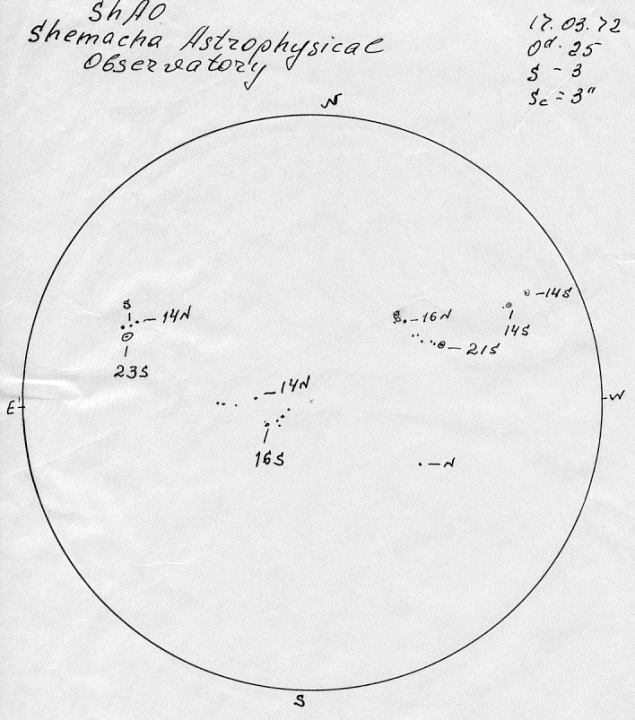 ShAO
Shemacha Astrophysical
Observatory
17.03.72
0ᵈ.25
S - 3
Sc = 3"
N
S
14N
23S
14N
16S
S
16N
21S
14S
14S
N
E
W
S